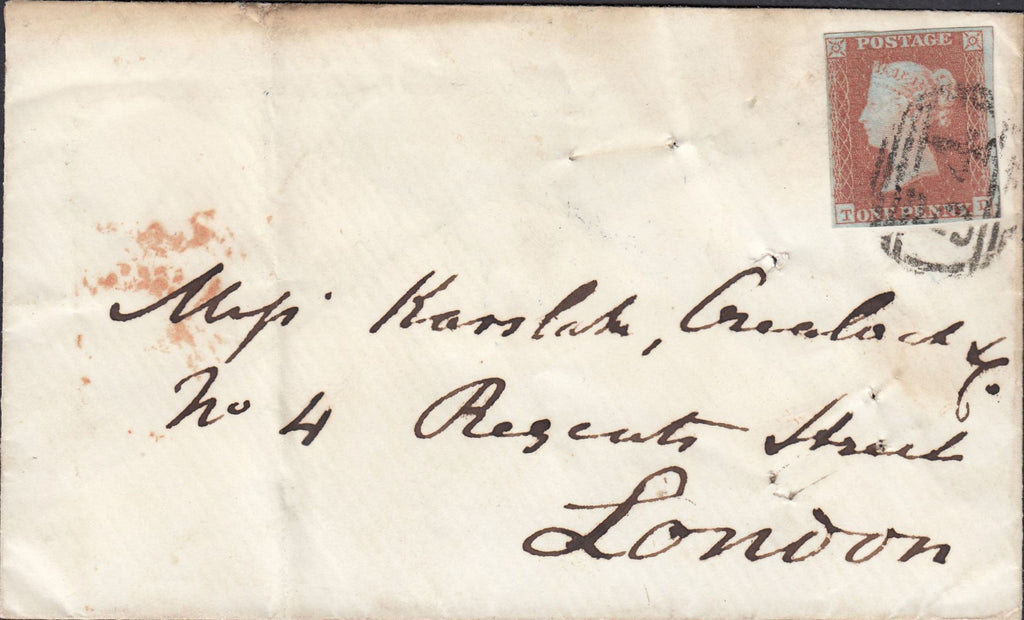 POSTAGE
T ONE PENNY D
Messrs Karslake, Crealock & Co.
No 4 Regents Street
London